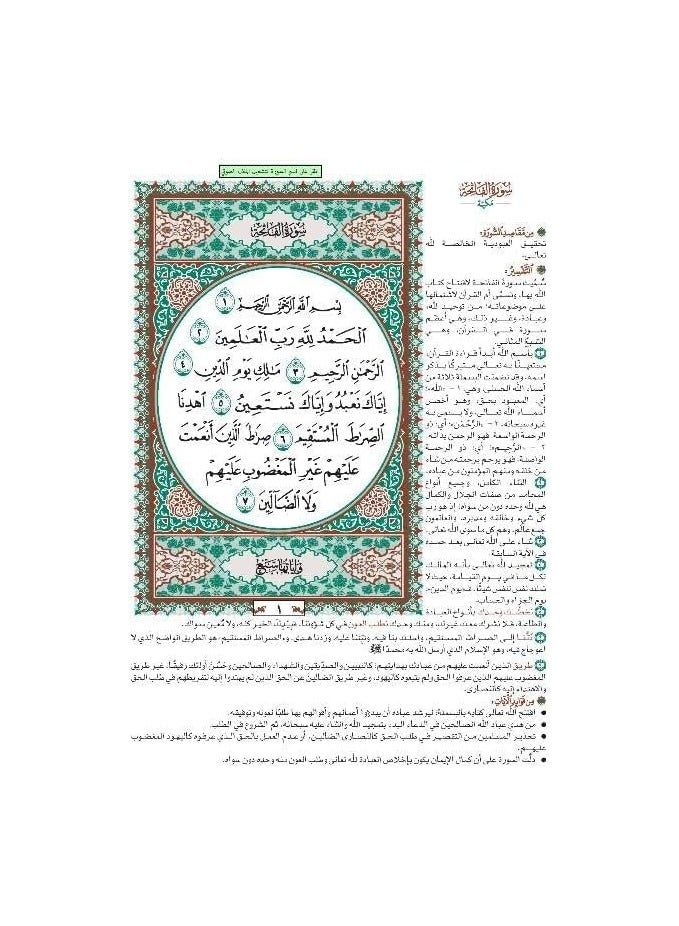 سُورَةُ الفَاتِحَةِ
بِسْمِ اللَّهِ الرَّحْمَٰنِ الرَّحِيمِ ١
الْحَمْدُ لِلَّهِ رَبِّ الْعَالَمِينَ ٢
الرَّحْمَٰنِ الرَّحِيمِ ٣ مَالِكِ يَوْمِ الدِّينِ ٤
إِيَّاكَ نَعْبُدُ وَإِيَّاكَ نَسْتَعِينُ ٥ اهْدِنَا
الصِّرَاطَ الْمُسْتَقِيمَ ٦ صِرَاطَ الَّذِينَ أَنْعَمْتَ
عَلَيْهِمْ غَيْرِ الْمَغْضُوبِ عَلَيْهِمْ
وَلَا الضَّالِّينَ ٧
وَآيَاتُهَا سَبْعٌ
١
سُورَةُ الفَاتِحَةِ
مَكِّيَّة
مِن مَّقَاصِدِ السُّورَةِ:
تحقيق العبودية الخالصة لله
تعالى.
التَّفْسِيرُ:
سُمِّيت سورة الفاتحة لافتتاح كتاب
الله بها، وتسمى أم القرآن لاشتمالها
على موضوعاته؛ من توحيد لله،
وعبادة، وغير ذلك، وهي أعظم
سورة في القرآن، وهي
السبع المثاني.
باسم الله أبدأ قراءة القرآن،
مستعينًا به تعالى متبركًا بذكر
اسمه. وقد تضمنت البسملة ثلاثة من
أسماء الله الحسنى، وهي: ١ - «الله»؛
أي: المعبود بحق، وهو أخص
أسماء الله تعالى، ولا يسمى به
غيره سبحانه. ٢ - «الرَّحْمَٰن»؛ أي: ذو
الرحمة الواسعة. فهو الرحمن بذاته.
٣ - «الرَّحِيم»؛ أي: ذو الرحمة
الواصلة. فهو يرحم برحمته من شاء
من خلقه ومنهم المؤمنون من عباده.
الثناء الكامل، وجميع أنواع
المحامد من صفات الجلال والكمال
هي لله وحده دون من سواه؛ إذ هو رب
كل شيء وخالقه ومدبره. والعالمون
جمع عالَم، وهم كل ما سوى الله تعالى.
ثناء على الله تعالى بعد حمده
في الآية السابقة.
تمجيد لله تعالى بأنه المالك
لكل ما في يوم القيامة، حيث لا
تملك نفس لنفس شيئًا. فـ«يوم الدين»:
يوم الجزاء والحساب.
نخصُّك وحدك بأنواع العبادة
والطاعة، فلا نشرك معك غيرك، ومنك وحدك نطلب العون في كل شؤوننا، فبِيَدِك الخير كله، ولا مُعين سواك.
دُلَّنا إلى الصراط المستقيم، واسلك بنا فيه، وثبِّتنا عليه، وزدنا هدى. و«الصراط المستقيم» هو الطريق الواضح الذي لا
اعوجاج فيه، وهو الإسلام الذي أرسل الله به محمدًا ﷺ
طريق الذين أنعمت عليهم من عبادك بهدايتهم؛ كالنبيين والصدِّيقين والشهداء والصالحين وحَسُن أولئك رفيقًا، غير طريق
المغضوب عليهم الذين عرفوا الحق ولم يتبعوه كاليهود، وغير طريق الضالين عن الحق الذين لم يهتدوا إليه لتفريطهم في طلب الحق
والاهتداء إليه كالنصارى.
مِن فَوَائِدِ الآيَاتِ:
• افتتح الله تعالى كتابه بالبسملة؛ ليرشد عباده أن يبدؤوا أعمالهم وأقوالهم بها طلبًا لعونه وتوفيقه.
• من هدي عباد الله الصالحين في الدعاء البدء بتمجيد الله والثناء عليه سبحانه، ثم الشروع في الطلب.
• تحذير المسلمين من التقصير في طلب الحق كالنصارى الضالين، أو عدم العمل بالحق الذي عرفوه كاليهود المغضوب
عليهم.
• دلَّت السورة على أن كمال الإيمان يكون بإخلاص العبادة لله تعالى وطلب العون منه وحده دون سواه.